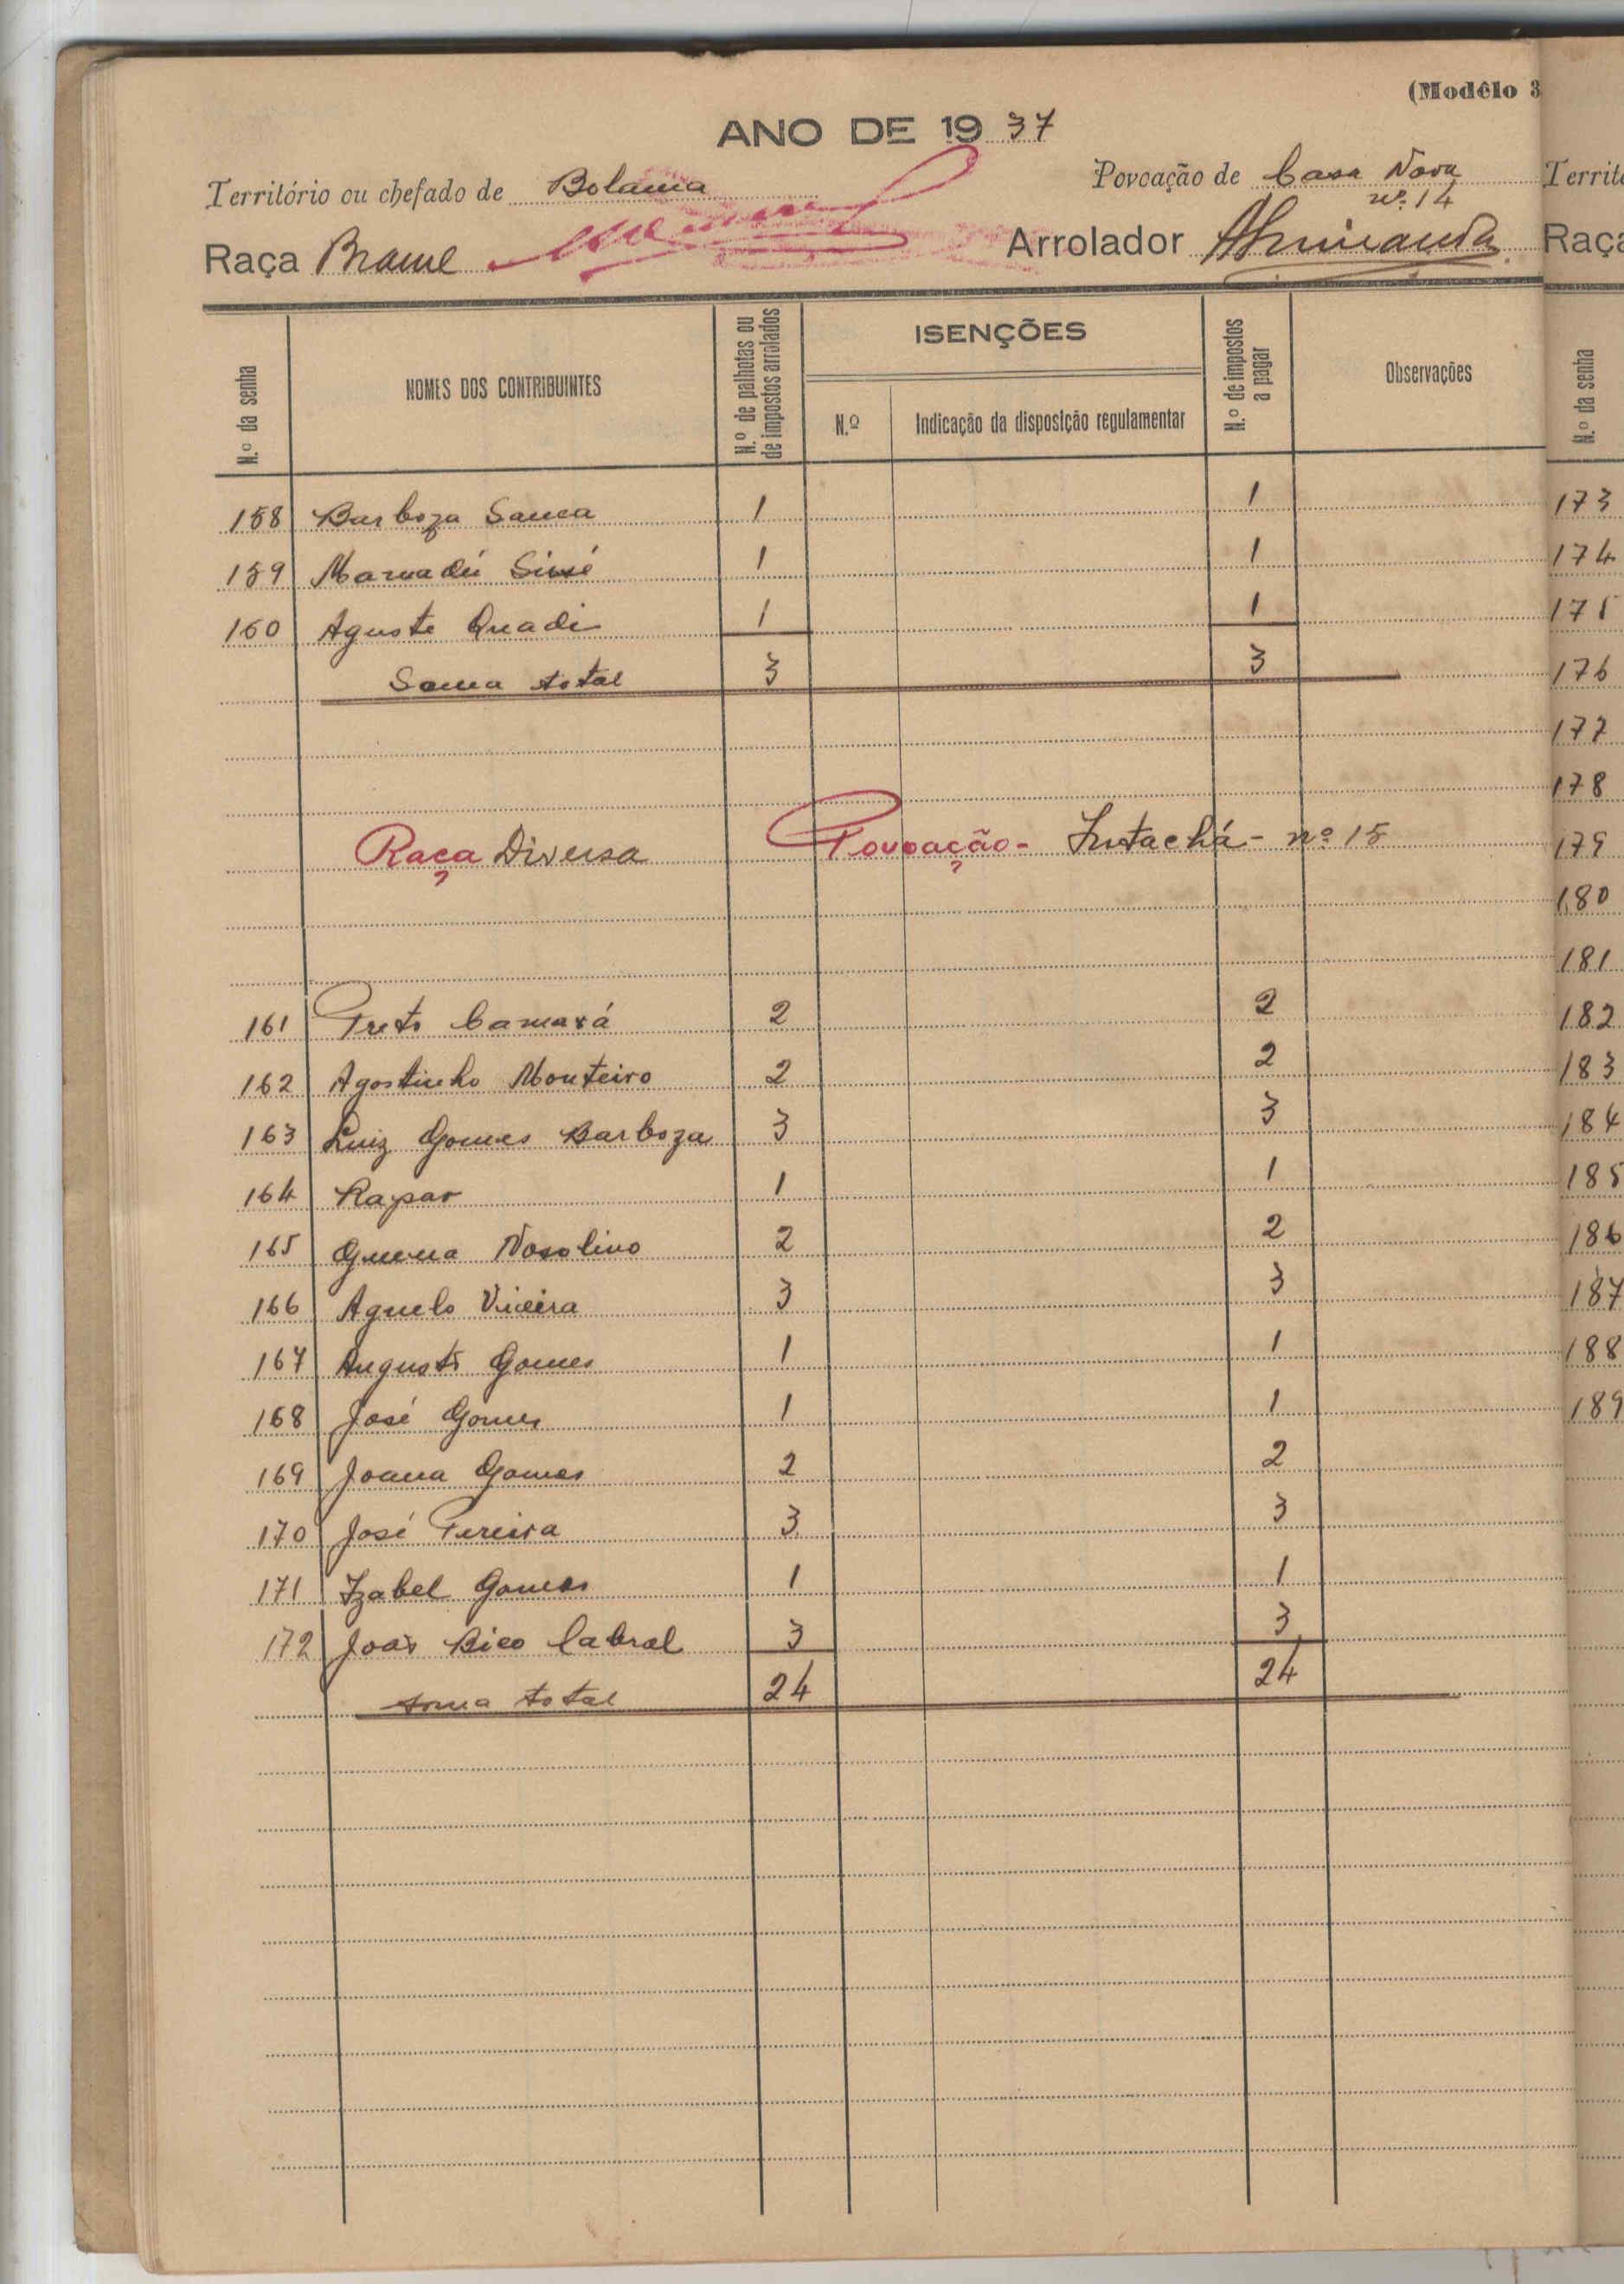 (Modêlo 3
ANO DE 19 37
Território ou chefado de Bolama Povoação de Casa Nova
nº 14
Raça Brame Arrolador
N.º da senha
NOMES DOS CONTRIBUINTES
N.º de palhotas ou de impostos arrolados
ISENÇÕES
N.º
Indicação da disposição regulamentar
N.º de impostos a pagar
Observações
158 Barboza Sanca 1 1
159 Mamadú Sissé 1 1
160 Aguste Quadi 1 1
Soma total 3 3
Raça Diversa Povoação - nº 15
161 Preto Camará 2 2
162 Agostinho Monteiro 2 2
163 Luiz Gomes Barboza 3 3
164 Kapar 1 1
165 Nosolino 2 2
166 Agnelo Vieira 3 3
167 Augusto Gomes 1 1
168 José Gomes 1 1
169 Joana Gomes 2 2
170 José Pereira 3 3
171 Izabel Gomes 1 1
172 João Bico Cabral 3 3
Soma total 24 24
Territó
Raça
N.º da senha
173
174
175
176
177
178
179
180
181
182
183
184
185
186
187
188
189